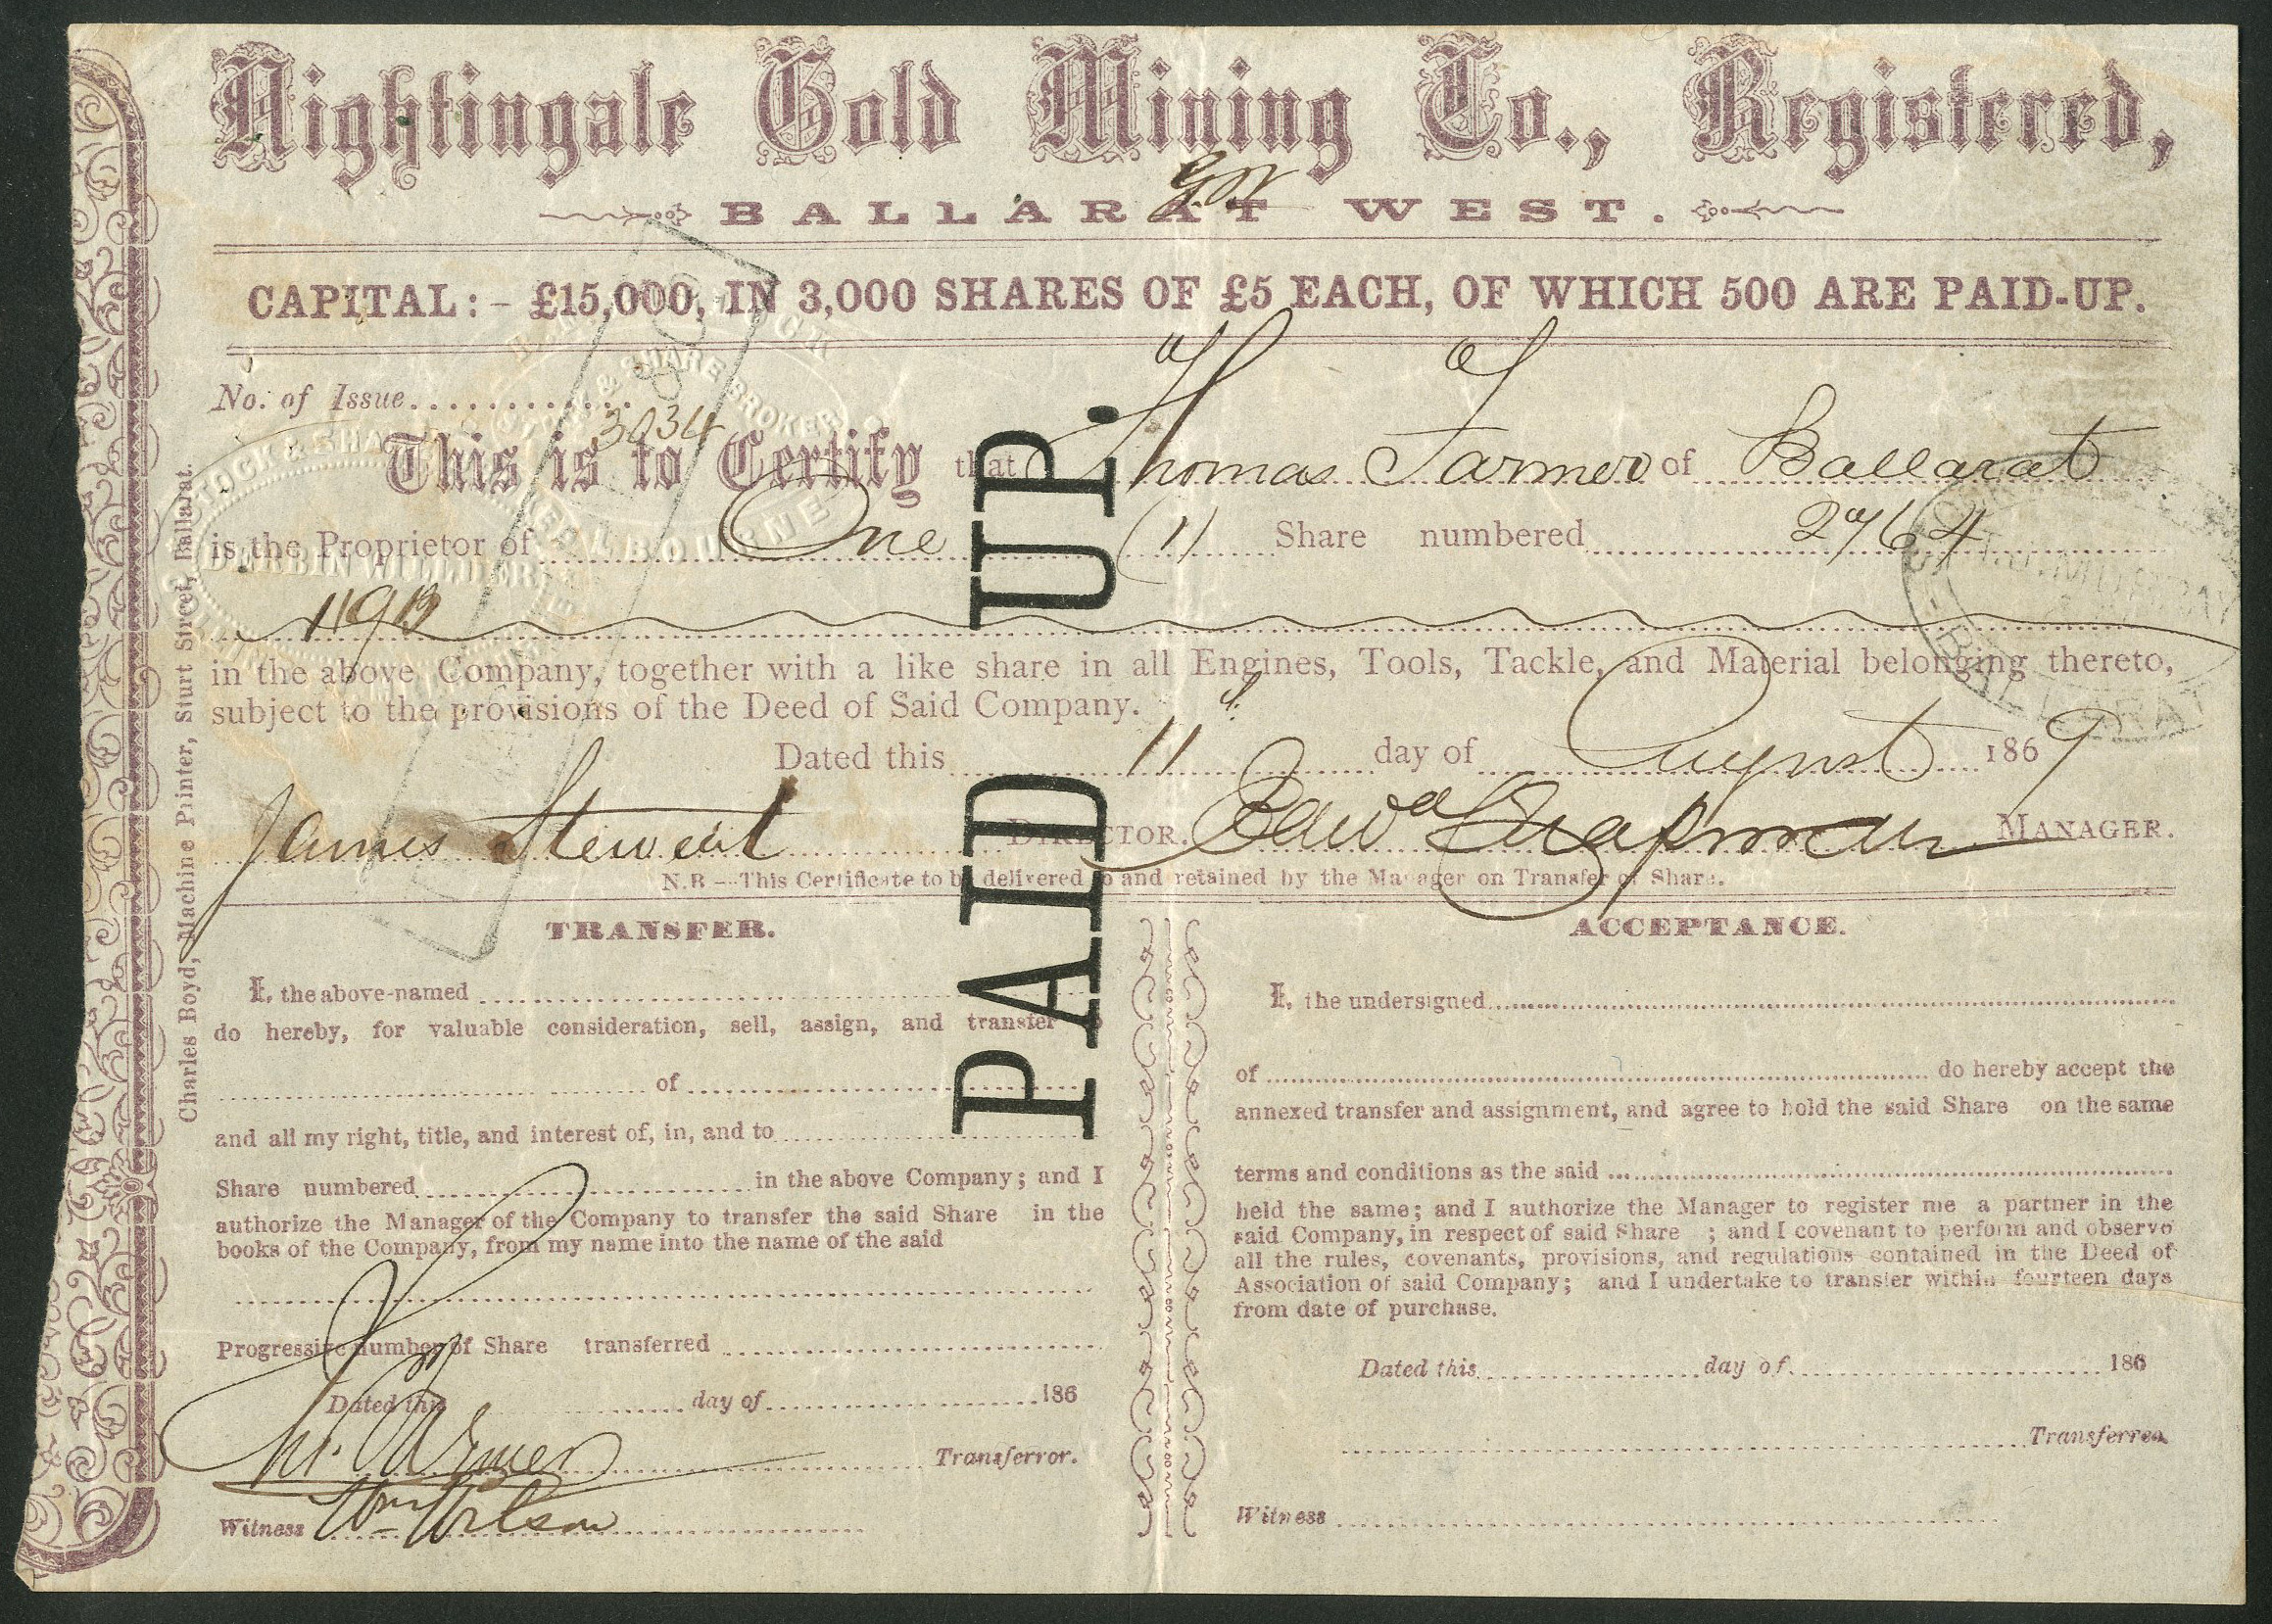 Nightingale Gold Mining Co., Registered,
BALLARAT WEST.
CAPITAL: - £15,000, IN 3,000 SHARES OF £5 EACH, OF WHICH 500 ARE PAID-UP.
No. of Issue
3034
This is to Certify that Thomas Farmer of Ballarat
is the Proprietor of One (1) Share numbered 2764
119B
in the above Company, together with a like share in all Engines, Tools, Tackle, and Material belonging thereto,
subject to the provisions of the Deed of Said Company.
Dated this 11 day of August 1869
James Stewart DIRECTOR. Edwd Chapman MANAGER.
N.B.—This Certificate to be delivered to and retained by the Manager on Transfer of Share.
PAID UP.
Charles Boyd, Machine Printer, Sturt Street, Ballarat.
STOCK & SHARE BROKER
MELBOURNE
STOCK & SHA
BALLARAT
TRANSFER.
I, the above-named
do hereby, for valuable consideration, sell, assign, and transfer to
of
and all my right, title, and interest of, in, and to
Share numbered in the above Company; and I
authorize the Manager of the Company to transfer the said Share in the
books of the Company, from my name into the name of the said
Progressive number of Share transferred
Dated this day of 186
Transferror.
Witness Wm Wilson
ACCEPTANCE.
I, the undersigned
of do hereby accept the
annexed transfer and assignment, and agree to hold the said Share on the same
terms and conditions as the said
held the same; and I authorize the Manager to register me a partner in the
said Company, in respect of said Share ; and I covenant to perform and observe
all the rules, covenants, provisions, and regulations contained in the Deed of
Association of said Company; and I undertake to transfer within fourteen days
from date of purchase.
Dated this day of 186
Transferree.
Witness